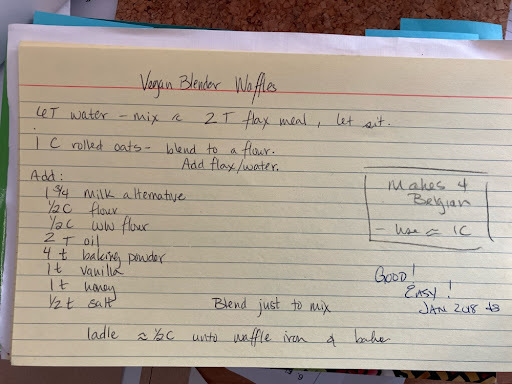 Vegan Blender Waffles
6T water - mix c̄ 2 T flax meal, let sit.
1 C rolled oats - blend to a flour.
Add flax/water.
Add:
1 3/4 milk alternative
1/2 C flour
1/2 C WW flour
2 T oil
4 t baking powder
1 t vanilla
1 t honey
1/2 t salt
Blend just to mix
ladle ≈ 1/2 C unto waffle iron & bake
Makes 4
Belgian
- Use ≈ 1C
GOOD!
EASY!
JAN 2018